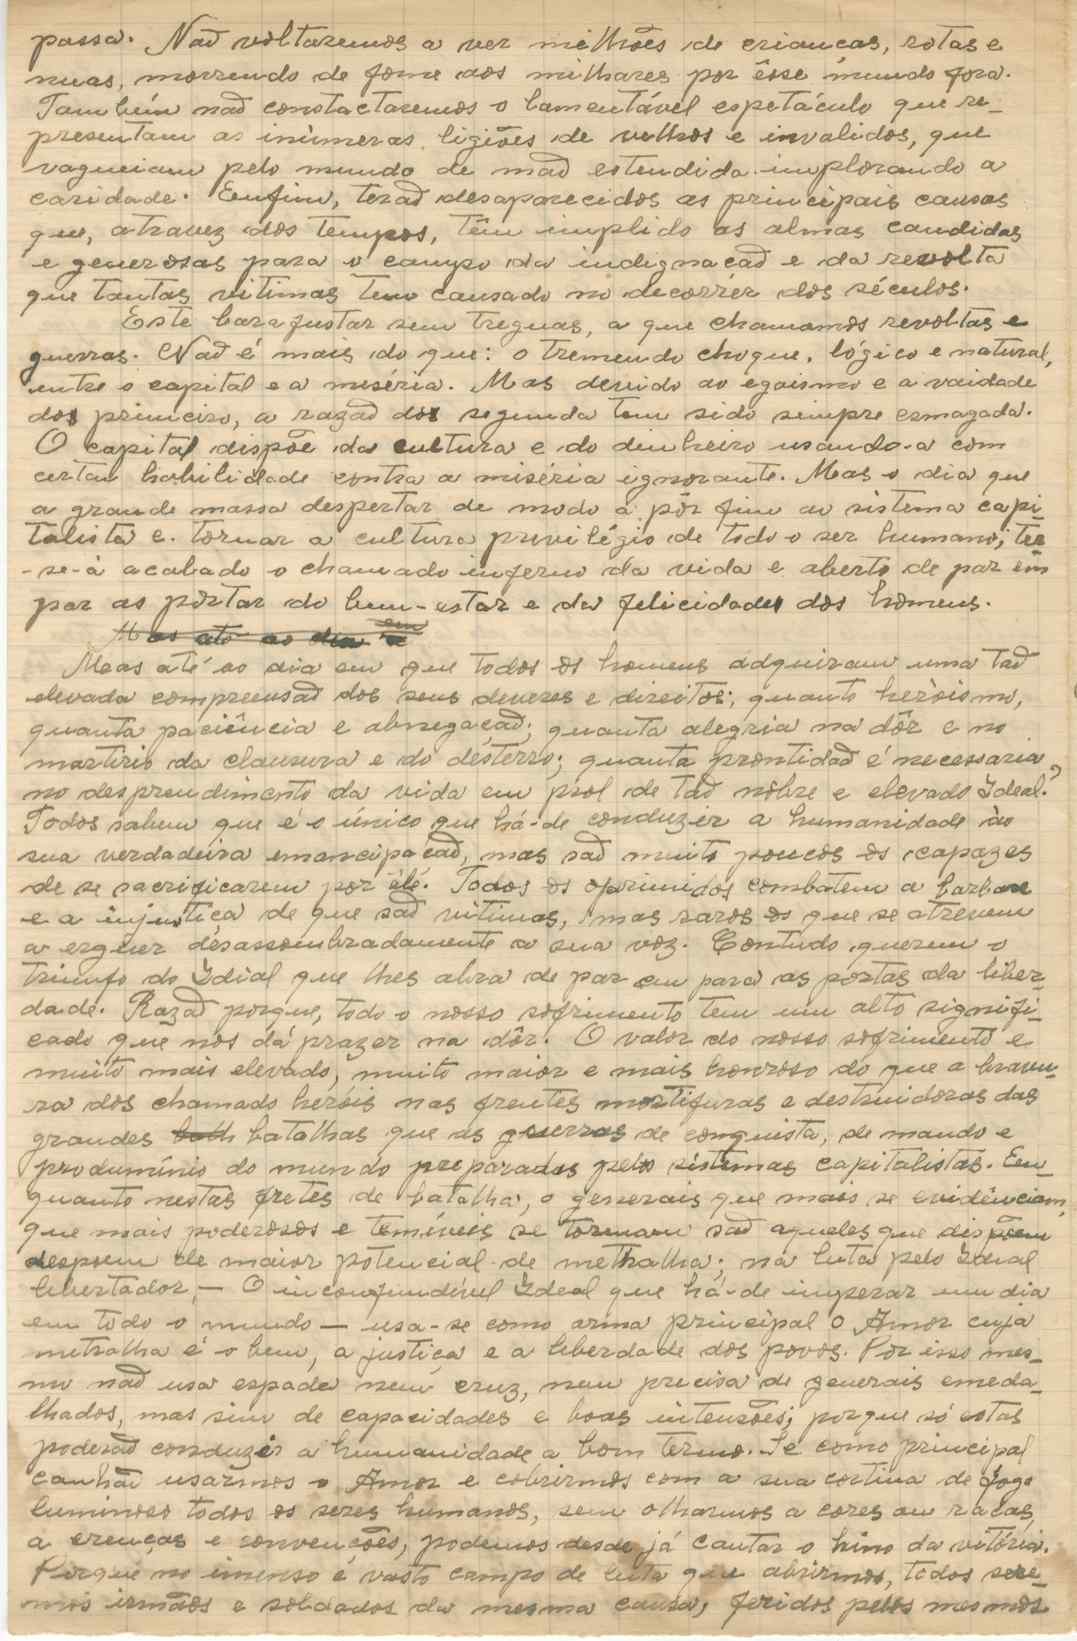 passa. Não voltaremos a ver milhões de crianças, rotas e
nuas, morrendo de fome aos milhares por êsse mundo fora.
Tambêm não constactaremos o lamentável espetáculo que re-
presentam as inùmeras ligiões de velhos e invalidos, que
vagueiam pelo mundo de mão estendida implorando a
caridade. Enfim, terão desaparecidos as principais causas
que, atravez dos tempos, têm implido as almas candidas
e generosas para o campo da indignação e da revolta
que tantas vitimas tem causado no decorrer dos séculos.
Este barafustar sem treguas, a que chamamos revoltas e
guerras. Não é mais do que: o tremendo choque, lógico e natural,
entre o capital e a miséria. Mas devido ao egaismo e a vaidade
dos primeiro, a razão dos segunda tem sido sempre esmagada.
O capital dispõe da cultura e do dinheiro usando-a com
certa habilidade contra a miséria ignorante. Mas o dia que
a grande massa despertar de modo a pôr fim ao sistema capi-
talista e tornar a cultura privilégio de todo o ser humano, ter-
-se-á acabado o chamado inferno da vida e aberto de par em
par as portas do bem-estar e da felicidade dos homens.
Mas até ao dia em
Mas até ao dia em que todos os homens adquiram uma tão
elevada compreensão dos seus deveres e direitos; quanto heròismo,
quanta paciência e abnegação; quanta alegria na dôr e no
martirio da clausura e do desterro; quanta prontidão é necessaria
no desprendimento da vida em prol de tão nôbre e elevado Ideal?
Todos sabem que é o único que há-de conduzir a humanidade ào
sua verdadeira emancipação, mas são muito poucos os capazes
de se sacrificarem por êle. Todos os oprimidos combatem a barbare
e a injustiça de que são vitimas, mas raros os que se atrevem
a erguer desassombradamente a sua voz. Contudo, querem o
triunfo do Idial que lhes abra de par em para as portas da liber-
dade. Razão porque, todo o nosso sofrimento tem um alto signifi-
cado que nos dá prazer na dôr. O valor do nosso sofrimento é
muito mais elevado, muito maior e mais honroso do que a bravu-
ra dos chamado heróis nas frentes mortifuras e destruidoras das
grandes batalhas que as guerras de conquista, de mando e
produmínio do mundo preparadas pelos sistemas capitalistas. En-
quanto nestas fretes de batalha, o generais que mais se evidênciam,
que mais poderosos e temíveis se tornam são aqueles que dispoem
despoem de maior potencial de metralha; na luta pelo Idial
libertador, — O inconfundível Ideal que há-de imperar um dia
em todo o mundo — usa-se como arma principal o Amor cuja
metralha é o bem, a justiça e a liberdade dos povos. Por isso mes-
mo não usa espada nem cruz, nem precisa de generais emeda-
lhados, mas sim de capacidades e boas intensões; porque só estas
poderão conduzir a humanidade a bom termo. Se como principal
canhão usarmos o Amor e cobrirmos com a sua cortina de fogo
luminoso todos os seres humanos, sem olharmos a cores ou raças,
a crenças e convenções, podemos desde já cantar o hino da vitória.
Porque no imenso e vasto campo de luta que abrirmos, todos sere-
mos irmãos e soldados da mesma causa, feridos pelos mesmos